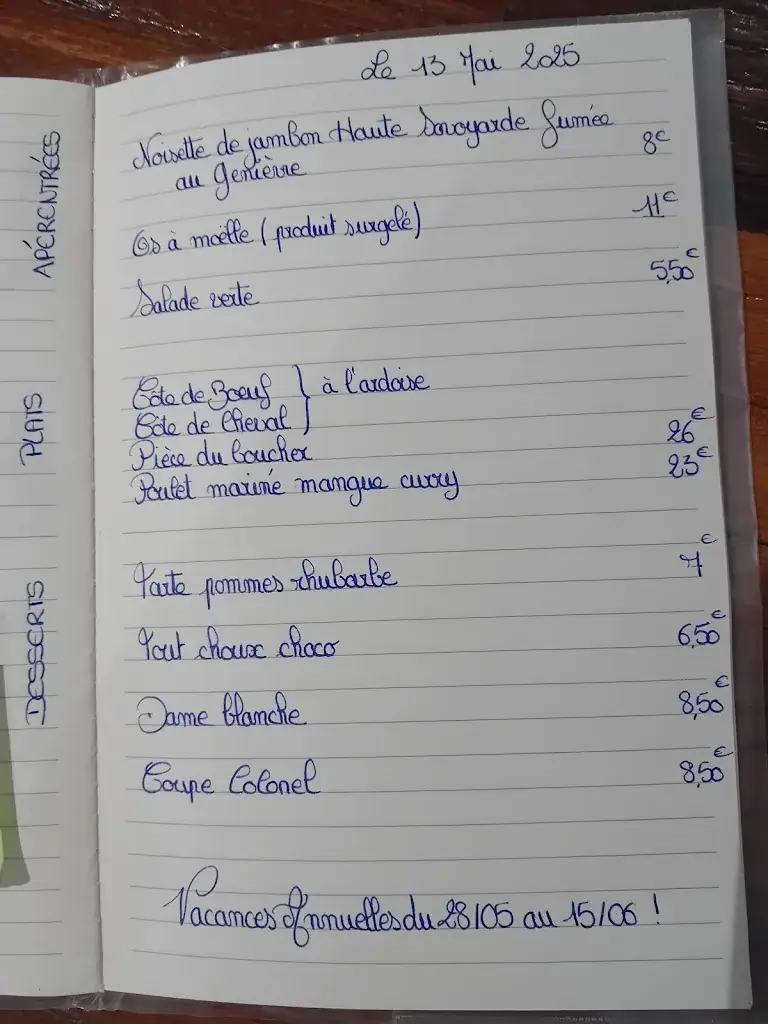 Le 13 Mai 2025
APÉRENTRÉES
Noisette de jambon Haute Savoyarde fumée
au Genièvre 8€
Os à moëlle (produit surgelé) 11€
Salade verte 5,50€
PLATS
Côte de Boeuf } à l'ardoise
Côte de Cheval
Pièce du boucher 26€
Poulet mariné mangue curry 23€
DESSERTS
Tarte pommes rhubarbe 7€
Tout choux choco 6,50€
Dame blanche 8,50€
Coupe Colonel 8,50€
Vacances Annuelles du 28/05 au 15/06 !